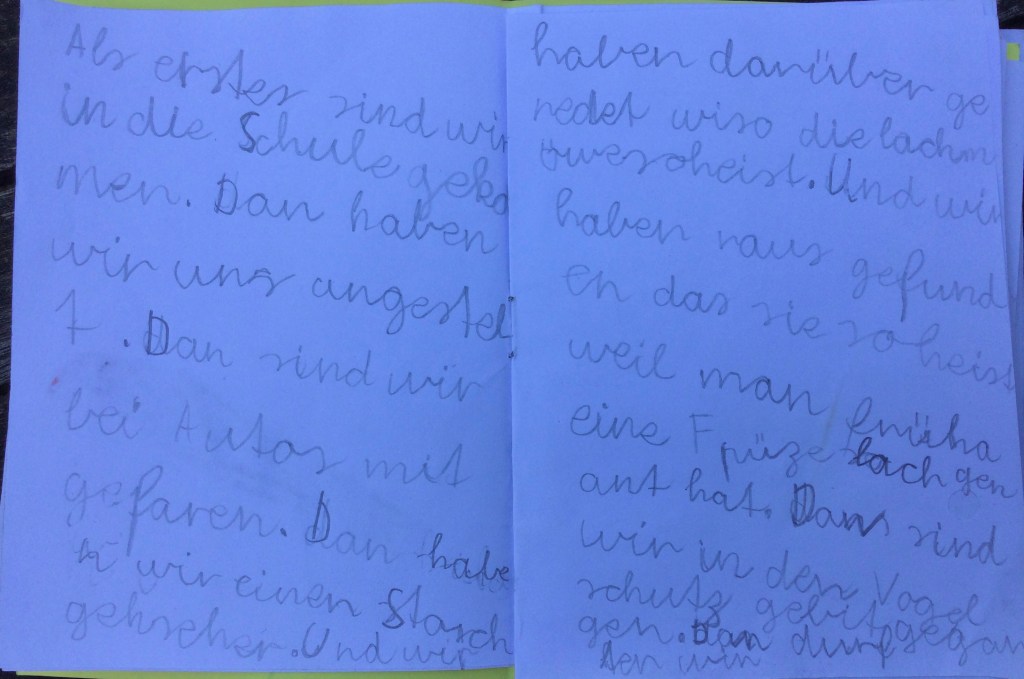 Als erster sind wir
in die Schule geko
men. Dan haben
wir uns angestel
t. Dan sind wir
bei Autos mit
gefaren. Dan habe
n wir einen Storch
gehseher. Und wir
haben darüber ge
redet wiso die lachm
öwesoheist. Und wir
haben raus gefund
en das sie so heist
weil man früha
eine Fpüze lach gen
ant hat. Dan sind
wir in den Vogel
schutz gebit gegan
gen. Dan durf
ten wir